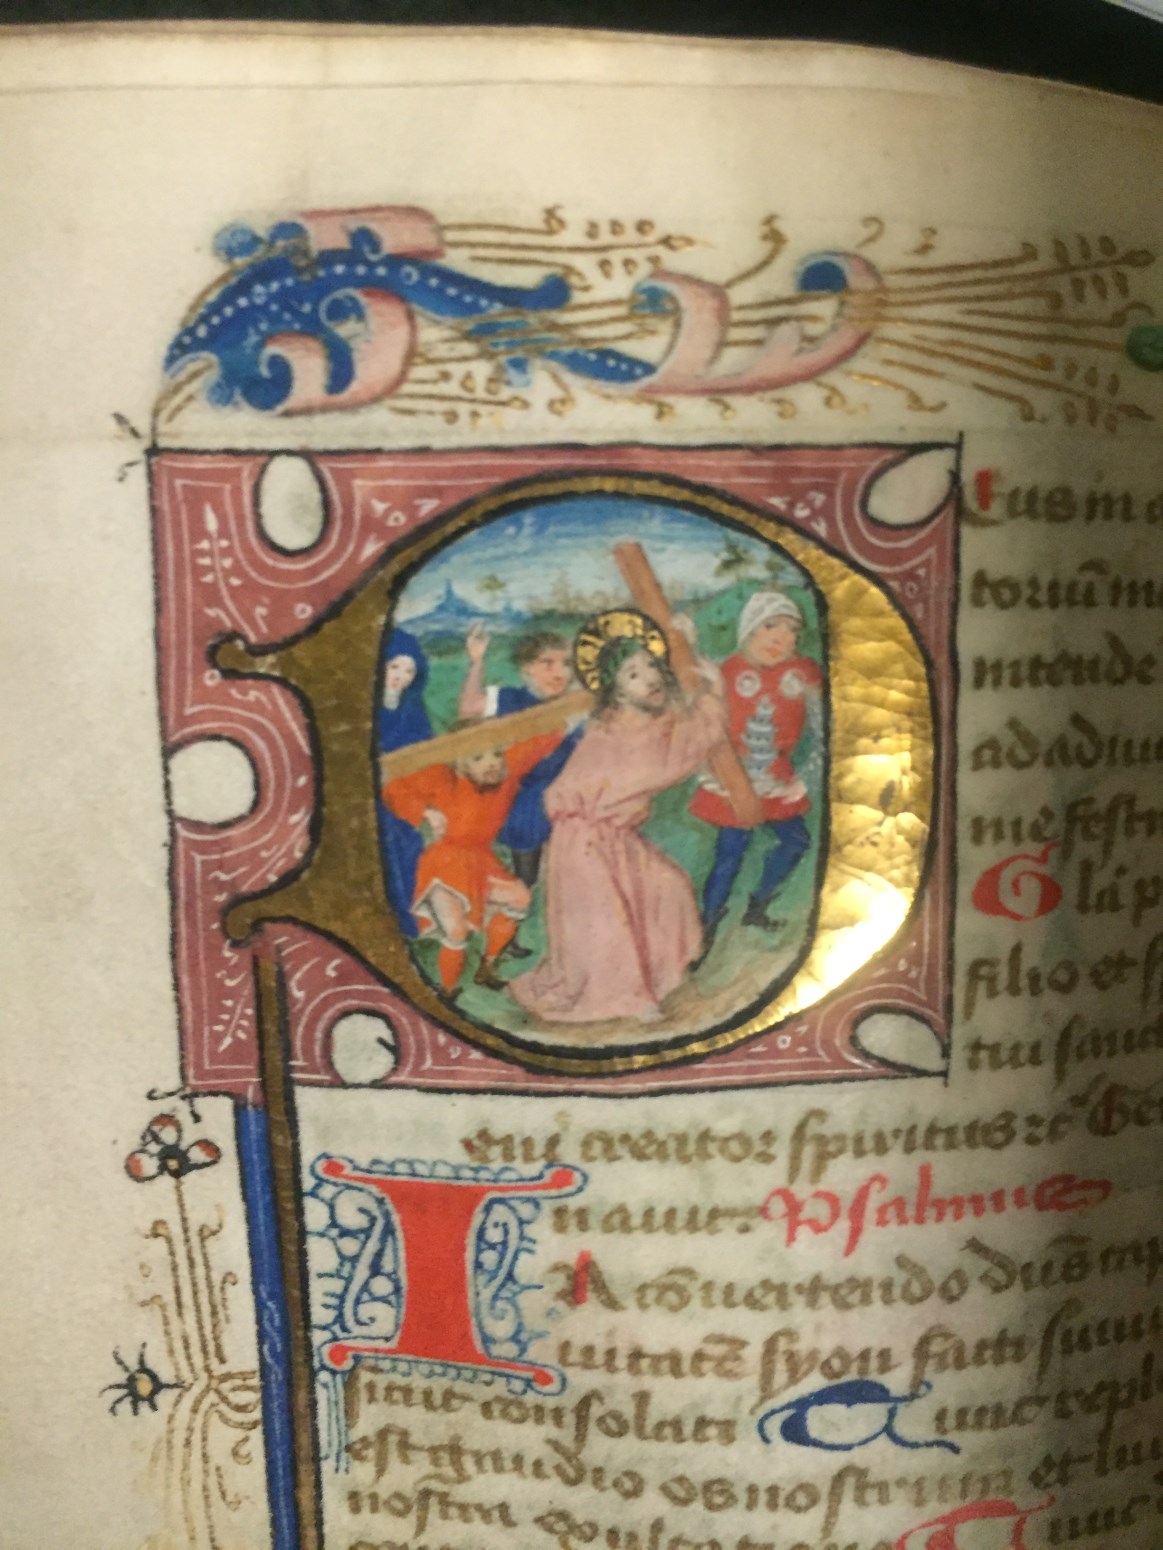 Deus in a
toriū m
intende
ad adiu
me festi
Gl'a p
filio et s
tui sanct
eni creator spiritus ꝛc̄ Ge
nauit. Psalmus
In cōuertendo dn̄s
uitatē syon facti sum
sicut consolati Tunc repl
est gaudio os nostrum et lin
nostra exultatione Tunc